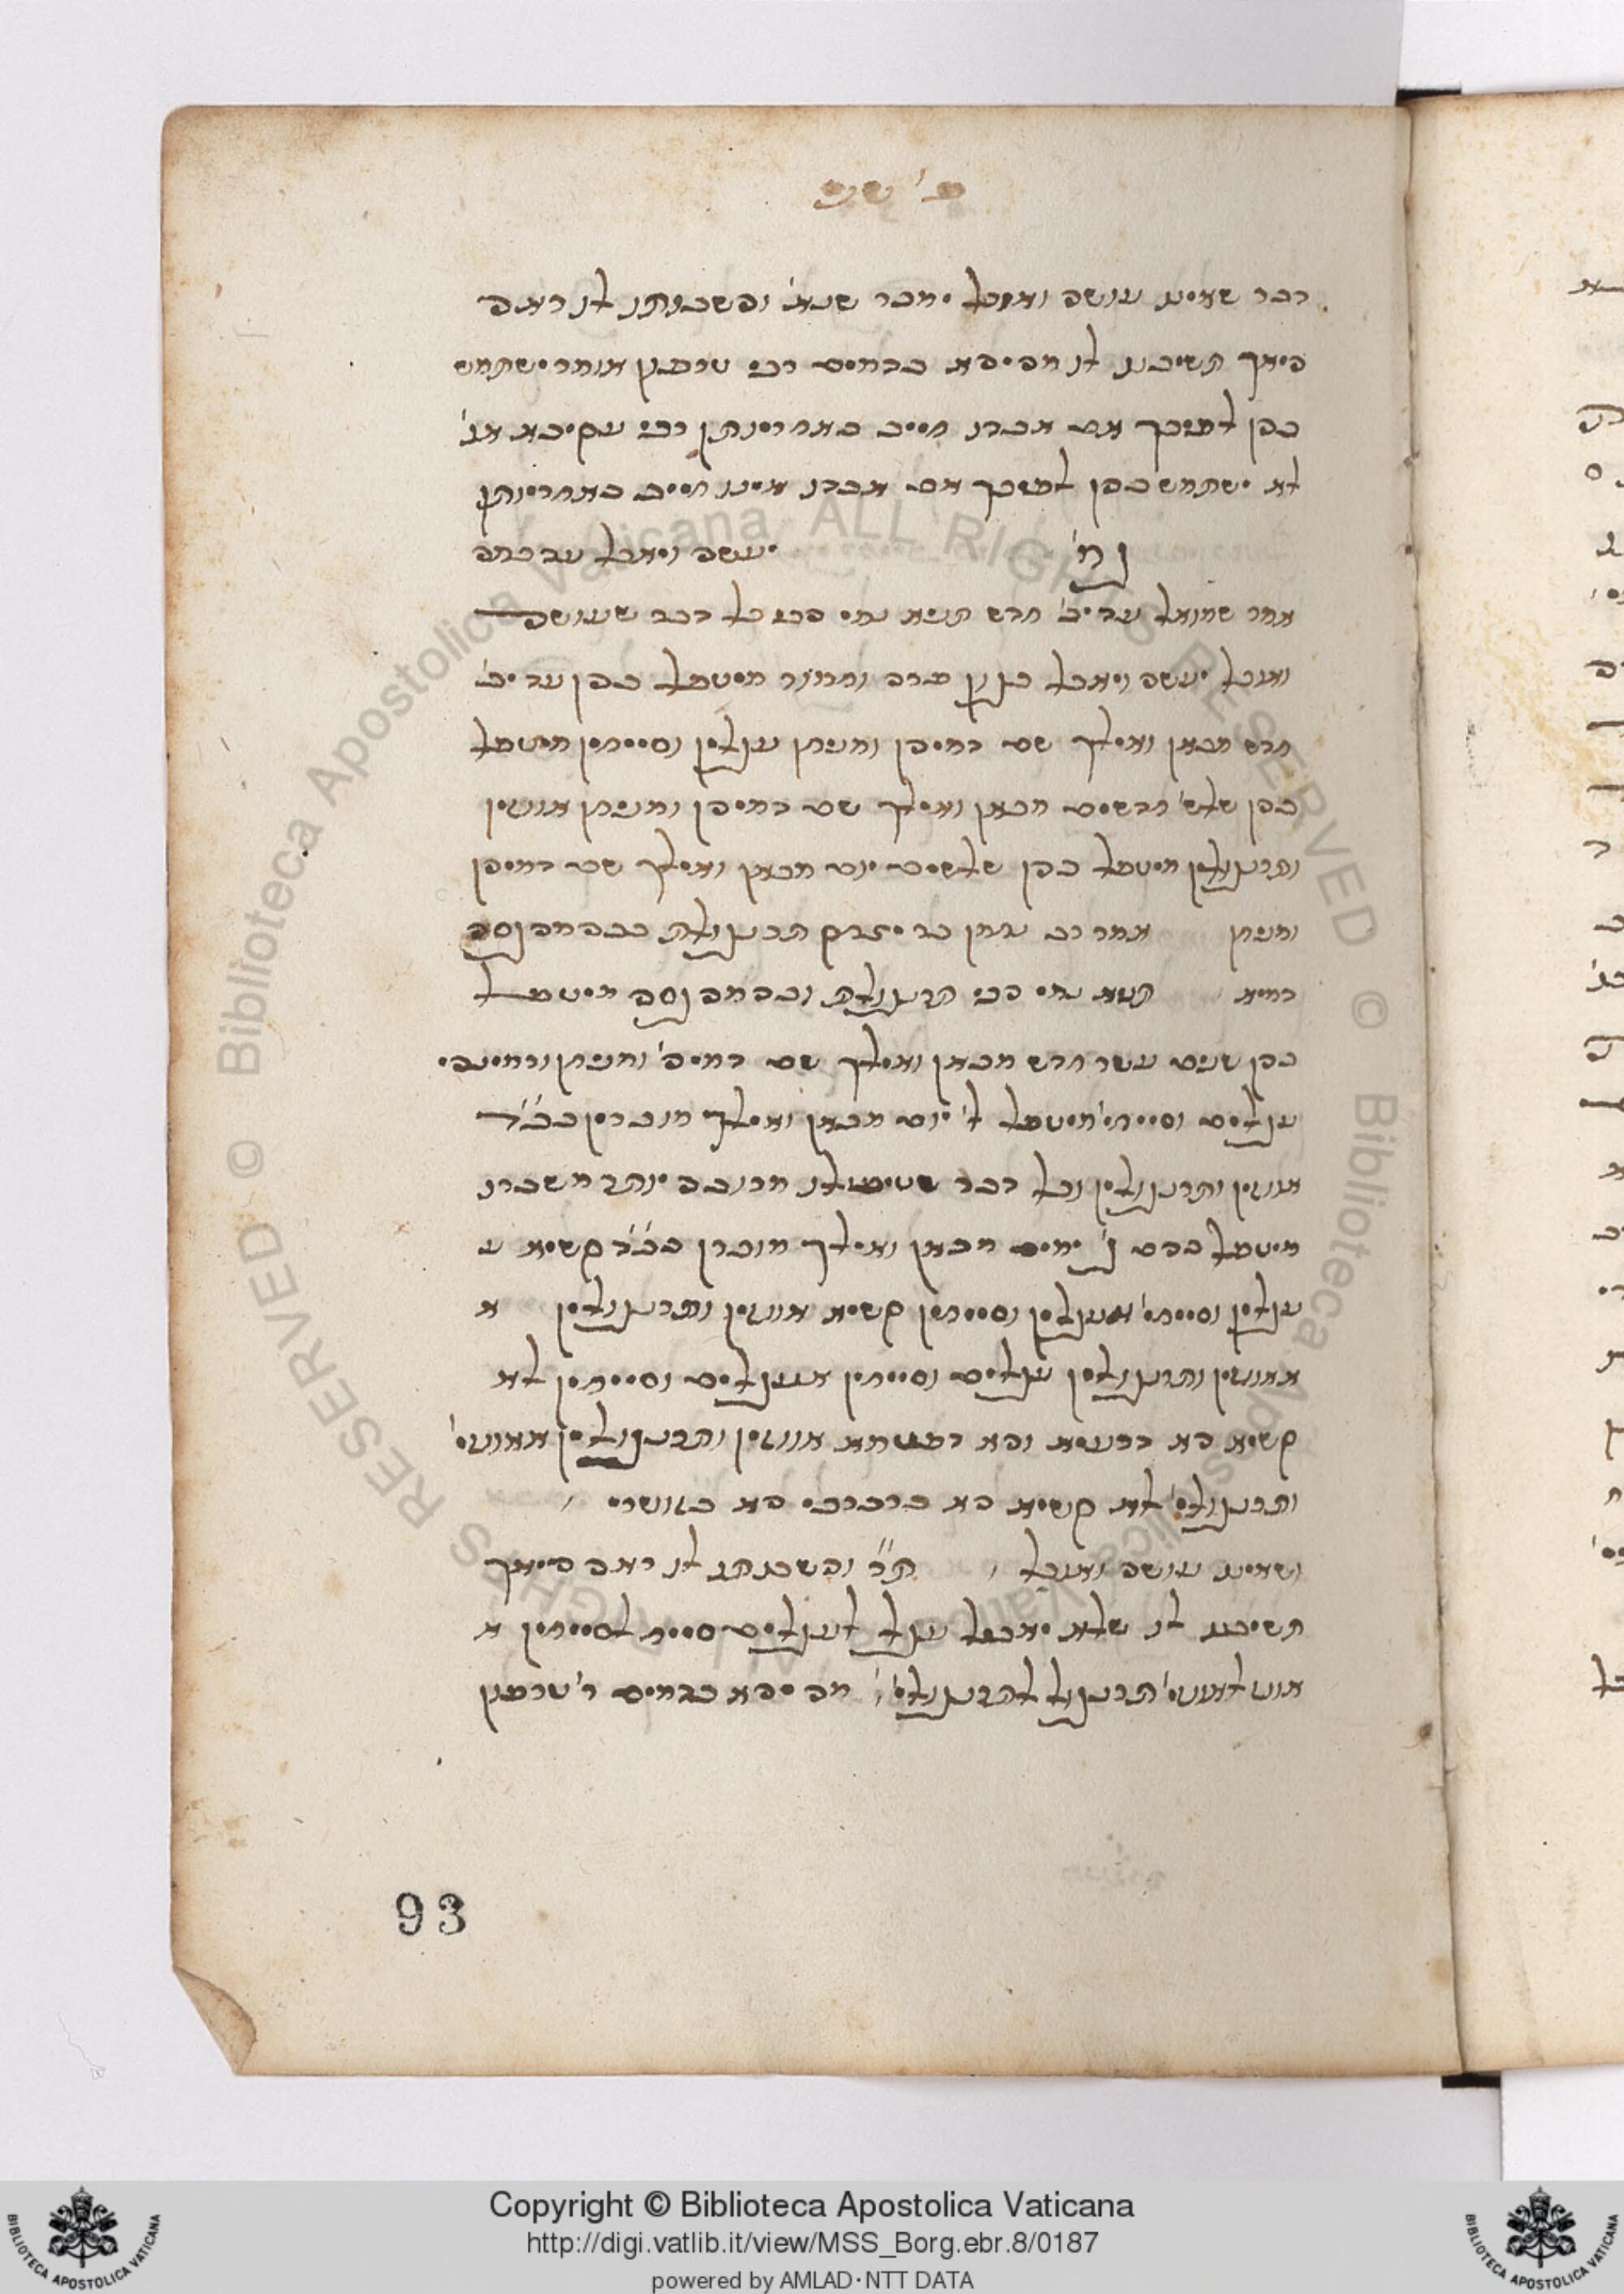 פ' שני
דבר שאינו עושה ואוכל ימכר שנא' והשבותו לו ראה
היאך תשיבנו לו מה יהא בדמים רבי טרפון אומר ישתמש
בהן לפיכך אם אבדו חייב באחריותן רבי עקיבא או'
לא ישתמש בהן לפיכך אם אבדו אינו חייב באחריותן
גמ' יעשה ויאכל עד כמה
אמר שמואל עד יב' חדש תניא נמי הכי כל דבר שעושה
ואוכל יעשה ויאכל כגון פרה וחמור מיטפל בהן עד יב'
חדש מכאן ואילך שם דמיהן ומניחן עגלין וסייחין מיטפל
בהן שלש' חדשים מכאן ואילך שם דמיהן ומניחן אווזין
ותרנגולין מיטפל בהן שלשים יום מכאן ואילך שם דמיהן
ומניחן אמר רב נחמן בר יצחק תרנגולת כבהמה גסה
דמיא תניא נמי הכי תרנגולת ובהמה גסה מיטפל
בהן שנים עשר חדש מכאן ואילך שם דמיה' ומניחן
עגלים וסייחי' מיטפל ל' יום מכאן ואילך מוכרין בב"ד
אווזין ותרנגולין וכל דבר שטיפולו מרובה יותר משכרו
מיטפל בהם ג' ימים מכאן ואילך מוכרן בב"ד קשיא ע
עגלין וסייחי' אעגלין וסייחין קשיא אווזין ותרנגולין א
אאווזין ותרנגולין עגלים וסייחין אעגלים וסייחין לא
קשיא הא דרעיא והא דפטמא אווזין ותרנגולין אאווזי'
ותרנגולי' לא קשיא הא ברברבי הא בזוטרי
ושאינו עושה ואוכל ת"ר והשבותו לו ראה היאך
תשיבנו לו שלא יאכיל עגל לעגלים סייח לסייחין א
אווז לאווזי' תרנגול לתרנגולי' מה יהא בדמים ר' טרפון
93
Copyright © Biblioteca Apostolica Vaticana
http://digi.vatlib.it/view/MSS_Borg.ebr.8/0187
powered by AMLAD·NTT DATA